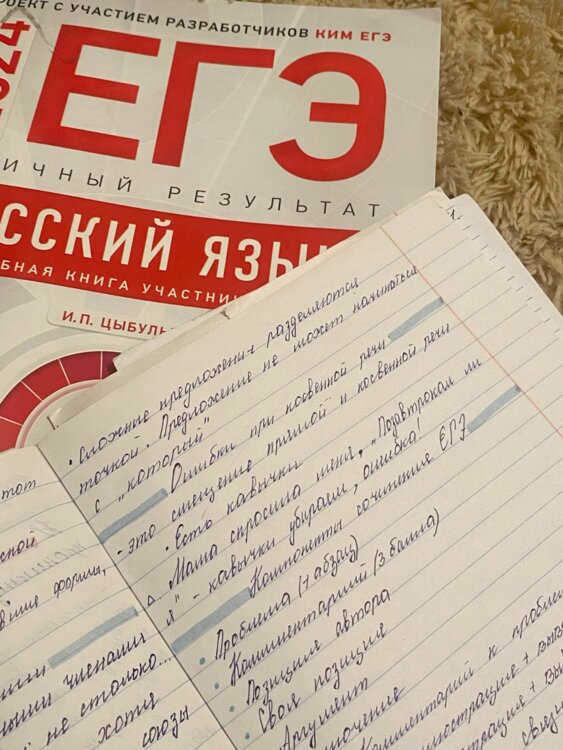 РОЕКТ С УЧАСТИЕМ РАЗРАБОТЧИКОВ КИМ ЕГЭ
ЕГЭ
ИЧНЫЙ РЕЗУЛЬТАТ
ССКИЙ ЯЗЫ
БНАЯ КНИГА УЧАСТНИ
И.П. ЦЫБУЛЬ
• Сложные предложения разделяются
точкой. Предложение не может начинаться
с "который"
Ошибки при косвенной речи
- это смещение прямой и косвенной речи
• Есть кавычки
Мама спросила меня, "Позавтракал ли
я" - кавычки убираем, ошибка!
Компоненты сочинение ЕГЭ
• Проблема (1 абзац)
• Комментарий (3 балла)
• Позиция автора
• Своя позиция
Аргумент
Комментарий к пробле
тот
ской
формы,
ными членами
не столько...
хотя
союзы